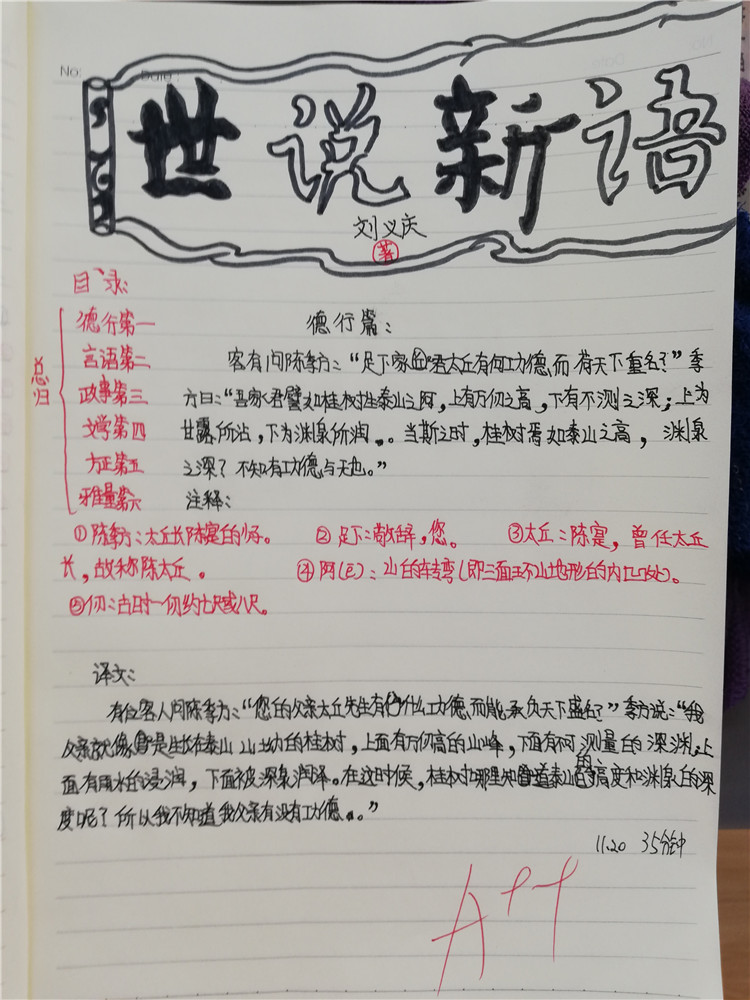 No:
Date:
世说新语
刘义庆
著
目录:
总归
德行第一
言语第二
政事第三
文学第四
方正第五
雅量第六
德行篇:
客有问陈季方:“足下家君太丘有何功德而荷天下重名?”季
方曰:“吾家君譬如桂树生泰山之阿,上有万仞之高,下有不测之深;上为
甘露所沾,下为渊泉所润。当斯之时,桂树焉知泰山之高,渊泉
之深?不知有功德与无也。”
注释:
①陈季方:太丘长陈寔的少子。 ②足下:敬辞,您。 ③太丘:陈寔,曾任太丘
长,故称陈太丘。 ④阿(ē):山的转弯(即三面环山地形的内凹处)。
⑤仞:古时一仞约七尺或八尺。
译文:
有位客人问陈季方:“您的父亲太丘先生有什么功德而能承负天下盛名?”季方说:“我
父亲就像是生长在泰山山坳的桂树,上面有万仞高的山峰,下面有何测量的深渊;上
面有雨水的浸润,下面被深泉润泽。在这时候,桂树哪里知道泰山的高度和渊泉的深
度呢?所以我不知道我父亲有没有功德。”
11.20 35分钟
A++